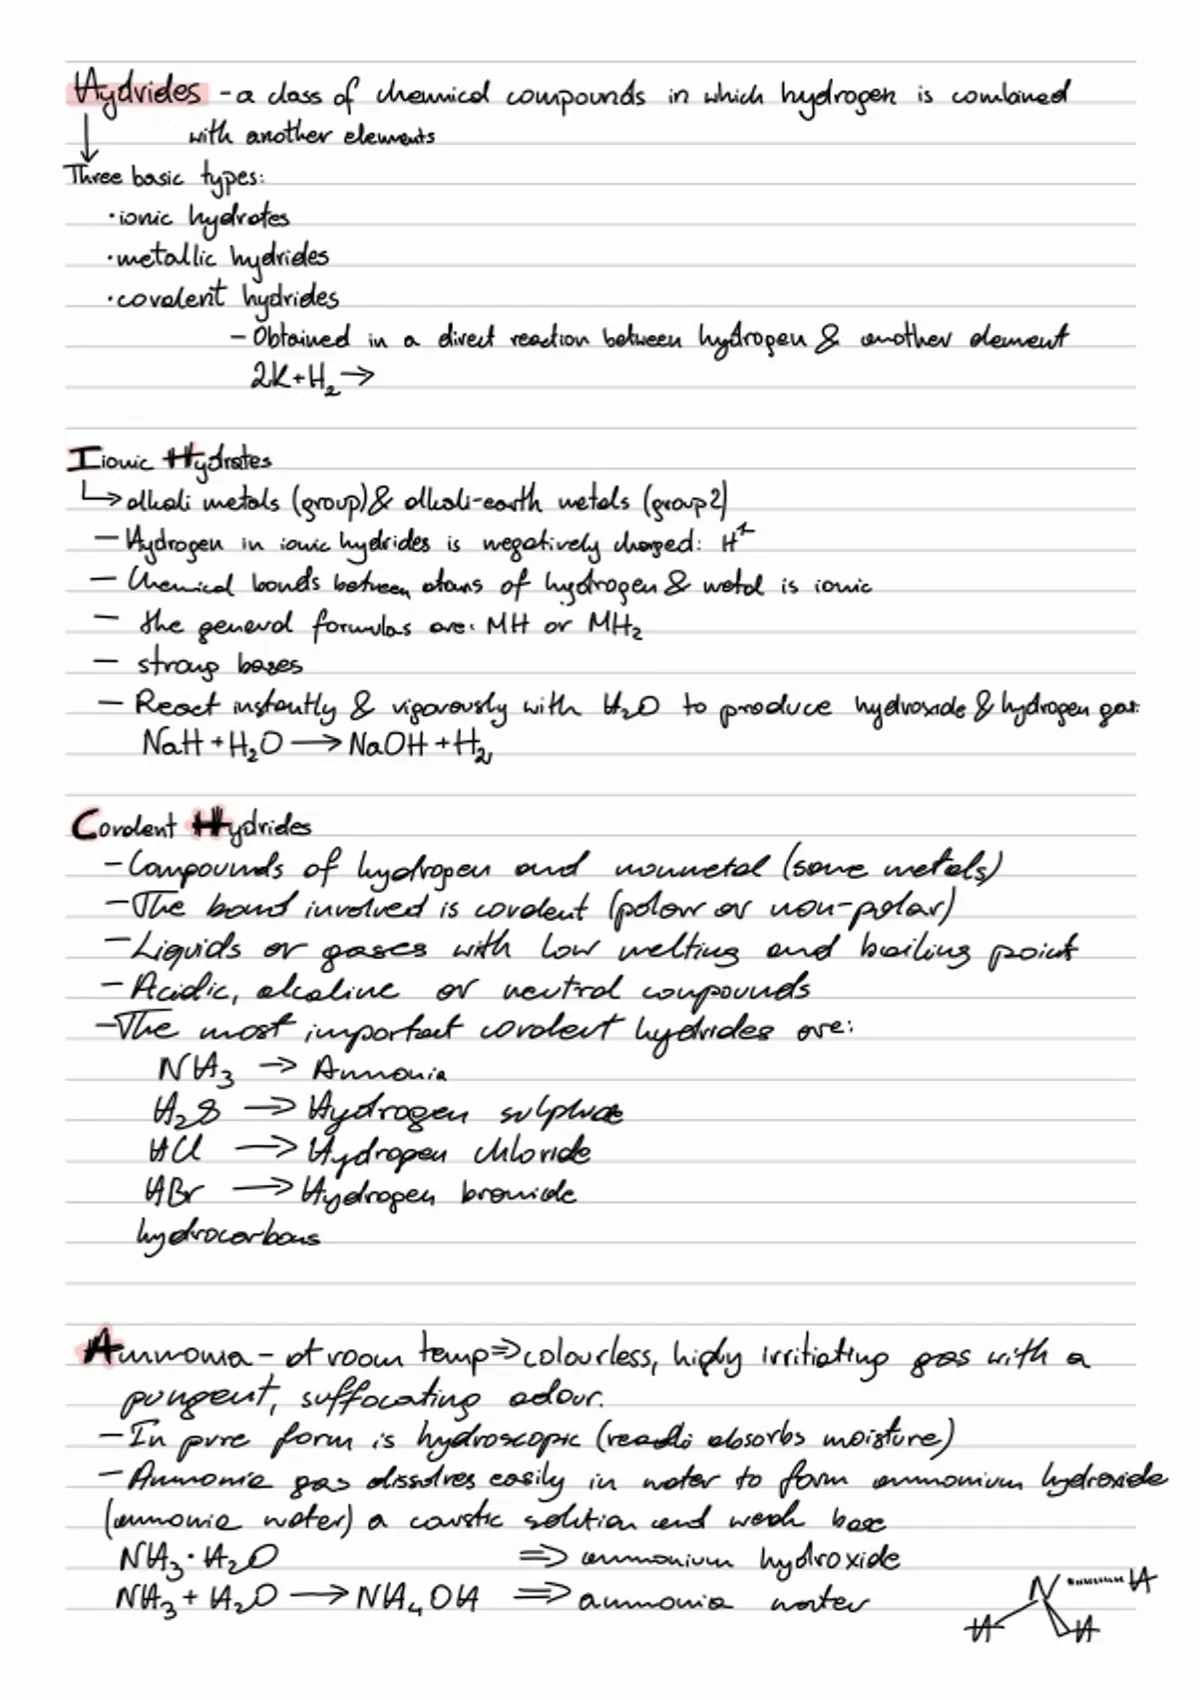 Hydrides - a class of chemical compounds in which hydrogen is combined
with another elements
Three basic types:
·ionic hydrates
·metallic hydrides
·covalent hydrides
- Obtained in a direct reaction between hydrogen & another element
2K+H₂→
Iionic Hydrates
↳ alkali metals (group)& alkali-earth metals (group2)
- Hydrogen in ionic hydrides is negatively charged:
- Chemical bonds between atoms of hydrogen & metal is ionic
- the general formulas are: MH or MH₂
- strong bases
- React instantly & vigorously with H₂O to produce hydroxide & hydrogen gas.
NaH + H₂O → NaOH + H₂
Covalent Hydrides
- Compounds of hydrogen and nonmetal (some metals)
- The bond involved is covalent (polar or non-polar)
- Liquids or gases with low melting and boiling point
- Acidic, alcaline or neutral compounds
- The most important covalent hydrides are:
NH₃ → Ammonia
H₂S → Hydrogen sulphide
HCl → Hydrogen chloride
HBr → Hydrogen bromide
hydrocarbons
Ammonia - at room temp⇒colourless, highly irritiating gas with a
pungent, suffocating odour.
- In pure form is hydroscopic (absorbs moisture)
- Ammonia gas dissolves easily in water to form ammonium hydroxide
(ammonia water) a caustic solution and weak base
NH₃·H₂O ⇒ ammonium hydroxide
NH₃ + H₂O → NH₄OH ⇒ ammonia water
N H
H H